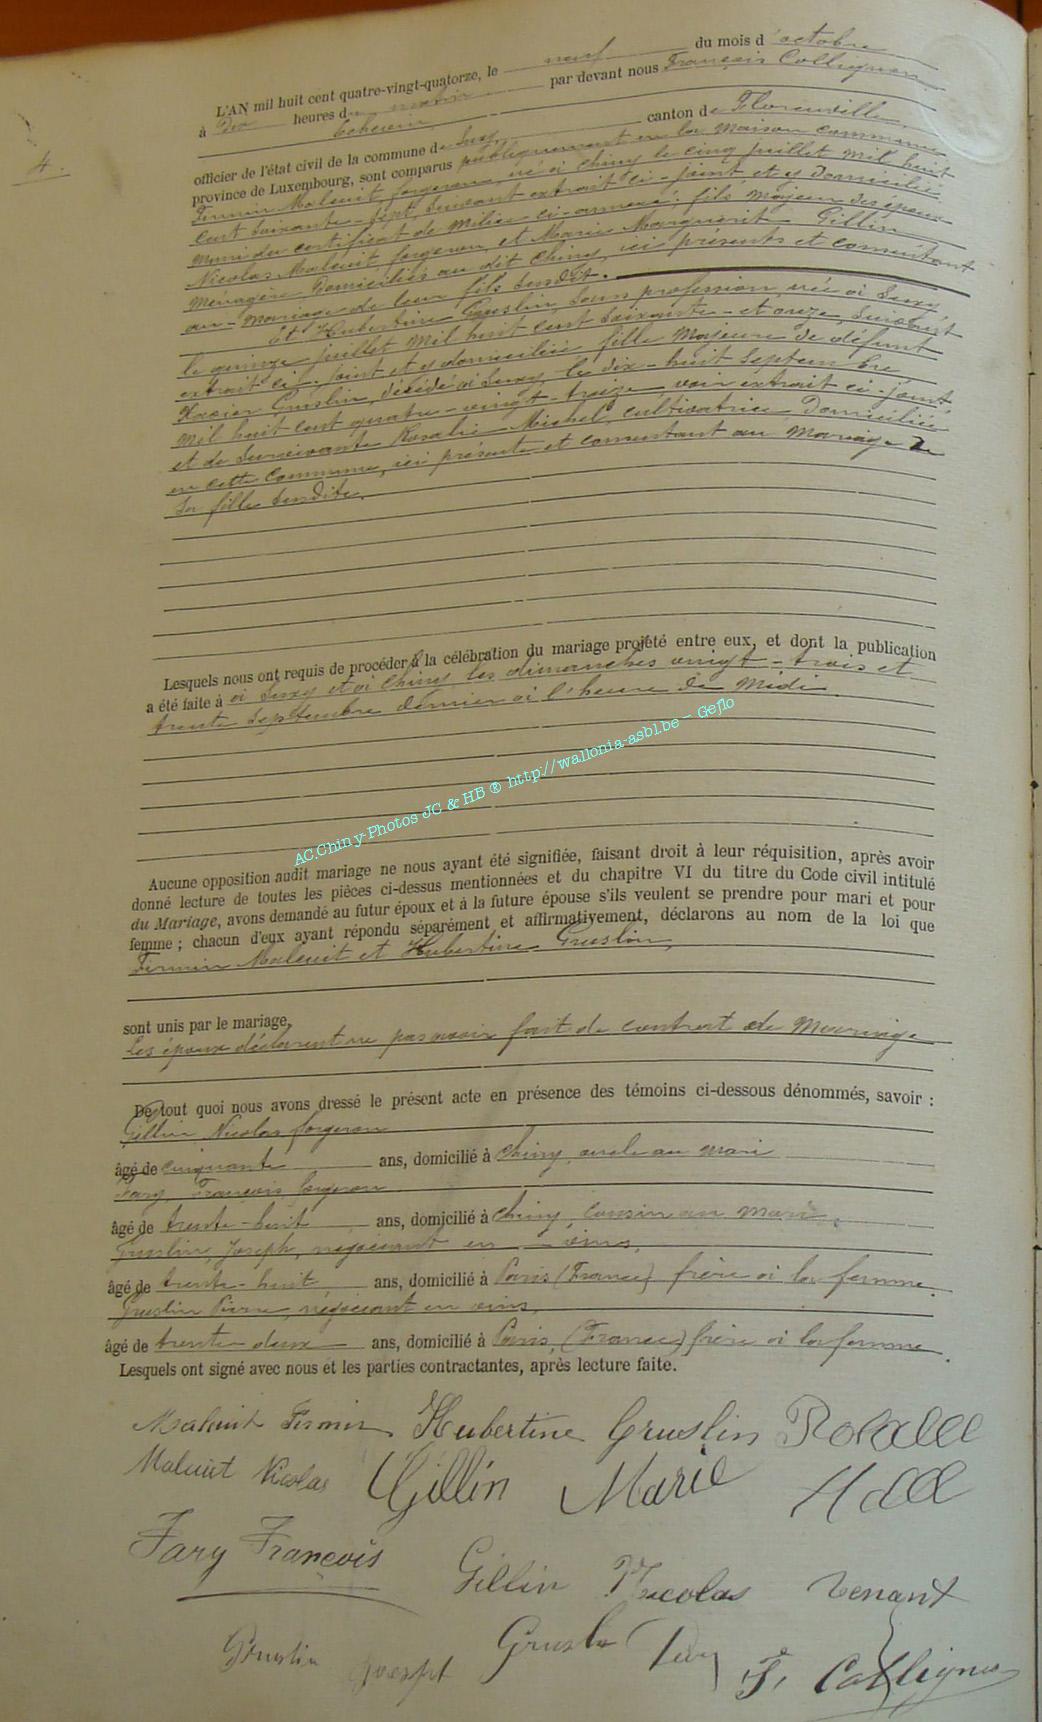 4.
L'AN mil huit cent quatre-vingt-quatorze, le neuf du mois d'octobre
à Dix heures du matin par devant nous François Collignon
échevin
officier de l'état civil de la commune de Suxy, canton de Florenville,
province de Luxembourg, sont comparus publiquement en la maison commune
Firmin Maleuit, forgeron, né à Chiny le cinq juillet mil huit
cent soixante-sept, suivant extrait ci-joint et y domicilié
muni du certificat de milice ci-annexé; fils majeur des époux
Nicolas Maleuit forgeron et Marie Marguerite Gillin
ménagère, domiciliés au dit Chiny, ici présents et consentant
au mariage de leur fils susdit.
Et Hubertine Gruslin, sans profession, née à Suxy
le quinze juillet mil huit cent soixante-et onze, suivant
extrait ci-joint et y domiciliée fille majeure de défunt
Xavier Gruslin, décédé à Suxy le dix-huit septembre
mil huit cent quatre-vingt-treize voir extrait ci-joint
et de survivante Rosalie Michel, cultivatrice domiciliée
en cette commune, ici présente et consentant au mariage de
sa fille susdite.
Lesquels nous ont requis de procéder à la célébration du mariage projeté entre eux, et dont la publication
a été faite à à Suxy et à Chiny les dimanches vingt-trois et
trente septembre dernier à l'heure de midi.
AC.Chiny-Photos JC & HB ® http://wallonia-asbl.be - Geflo
Aucune opposition audit mariage ne nous ayant été signifiée, faisant droit à leur réquisition, après avoir
donné lecture de toutes les pièces ci-dessus mentionnées et du chapitre VI du titre du Code civil intitulé
du Mariage, avons demandé au futur époux et à la future épouse s'ils veulent se prendre pour mari et pour
femme ; chacun d'eux ayant répondu séparément et affirmativement, déclarons au nom de la loi que
Firmin Maleuit et Hubertine Gruslin,
sont unis par le mariage,
Les époux déclarent ne pas avoir fait de contrat de mariage
De tout quoi nous avons dressé le présent acte en présence des témoins ci-dessous dénommés, savoir :
Gillin Nicolas forgeron
âgé de cinquante ans, domicilié à Chiny, oncle au mari
Fary, François forgeron
âgé de trente-huit ans, domicilié à Chiny, cousin au mari.
Gruslin, Joseph, négociant en vins,
âgé de trente-huit, ans, domicilié à Paris (France) frère à la femme.
Gruslin Pierre, négociant en vins,
âgé de trente-deux ans, domicilié à Paris, (France) frère à la femme.
Lesquels ont signé avec nous et les parties contractantes, après lecture faite.
Maleuit Firmin Hubertine Gruslin
Maleuit Nicolas Gillin Marie
Fary François Gillin Nicolas
Gruslin Joseph F. Collignon